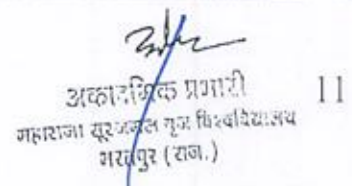 अकादमिक प्रभारी
11
महाराजा सूरजमल बृज विश्वविद्यालय
भरतपुर (राज.)